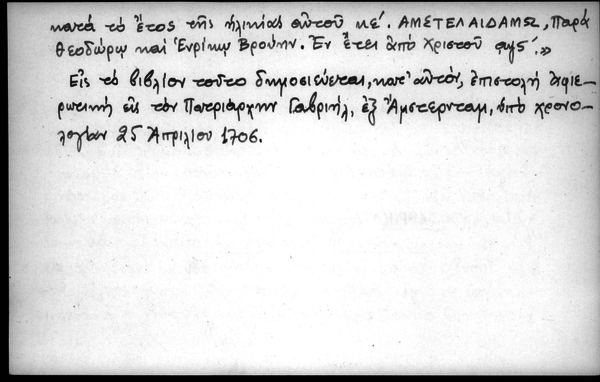 κατά τὸ ἔτος τῆς ἡλικίας αὐτοῦ κέ. ΑΜΣΤΕΛΑΙΔΑΜΩ, Παρά
Θεοδώρῳ καί Ἑνρίκῳ Βρούνη. Ἐν ἔτει ἀπό Χριστοῦ αψς΄.»
Εἰς τὸ βιβλίον τοῦτο δημοσιεύεται, κατ' αὐτόν, ἐπιστολή ἀφιε-
ρωτική εἰς τόν Πατριάρχην Γαβριήλ, ἐξ Ἄμστερνταμ, ὑπό χρονο-
λογίαν 25 Ἀπριλίου 1706.